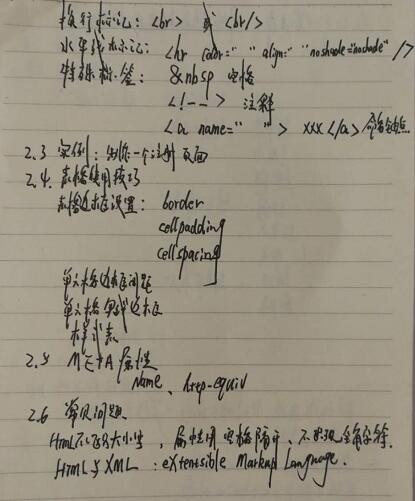 换行标记: <br> 或 <br/>
水平线标记: <hr color=" " align=" " noshade="noshade" />
特殊标签: &nbsp 空格
<!-- > 注释
<a name=" "> xxx </a> 命名锚点
2.3 实例: 制作一个注册页面
2.4. 表格使用技巧
表格边框设置: border
cellpadding
cellspacing
单元格边框间距
单元格 边框
样式表
2.5 META 属性
Name, http-equiv
2.6 常见问题
HTML不区分大小写, 属性用空格隔开, 不出现全角字符.
HTML与XML: eXtensible Markup Language.